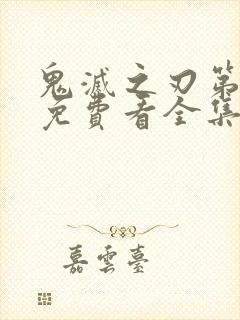 鬼滅之刃第
免費看全集
嘉雲臺